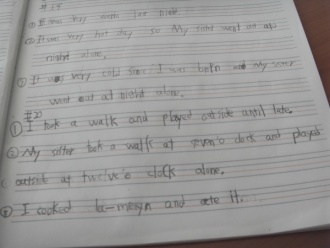 #19
① It was very warm last night.
② It was very hot day so My sister went out at
night alone.
③ It was very cold since I was born and My sister
went out at night alone.
#20
① I took a walk and played outside until late.
② My sister took a walk at seven o clock and played
outside at twelve's clock alone.
I cooked la-mesyn and ate it.